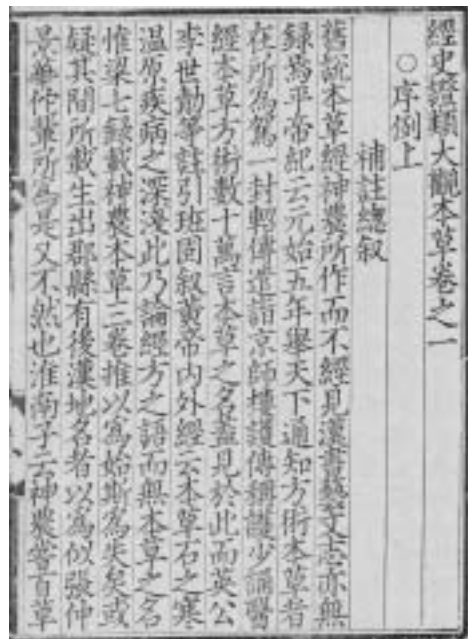 經史證類大觀本草卷之一
○序例上
補註總叙
舊說本草經神農所作而不經見漢書藝文志亦無
録焉平帝紀云元始五年舉天下通知方術本草者
在所為駕一封軺傳遣詣京師樓護傳稱護少誦醫
經本草方術數十萬言本草之名蓋見於此而英公
李世勣等註引班固叙黃帝内外經云本草石之寒
温原疾病之深淺此乃論經方之語而無本草之名
惟梁七録載神農本草三卷推以為始斯為失矣或
疑其間所載生出郡縣有後漢地名者以為似張仲
景華佗輩所為是又不然也淮南子云神農嘗百草